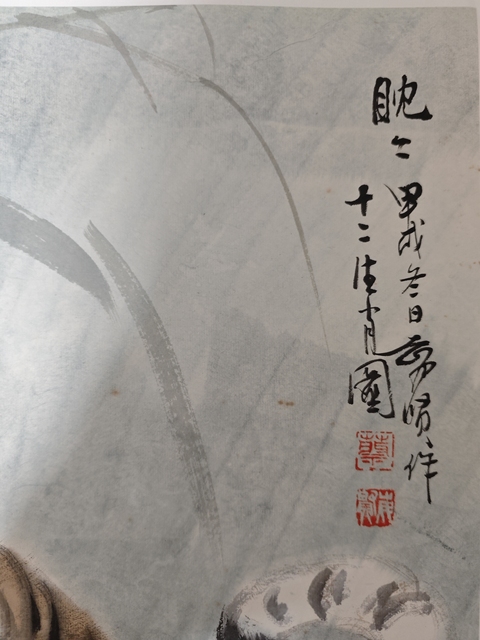 眈々
甲戌冬日賢作
十二生肖圖